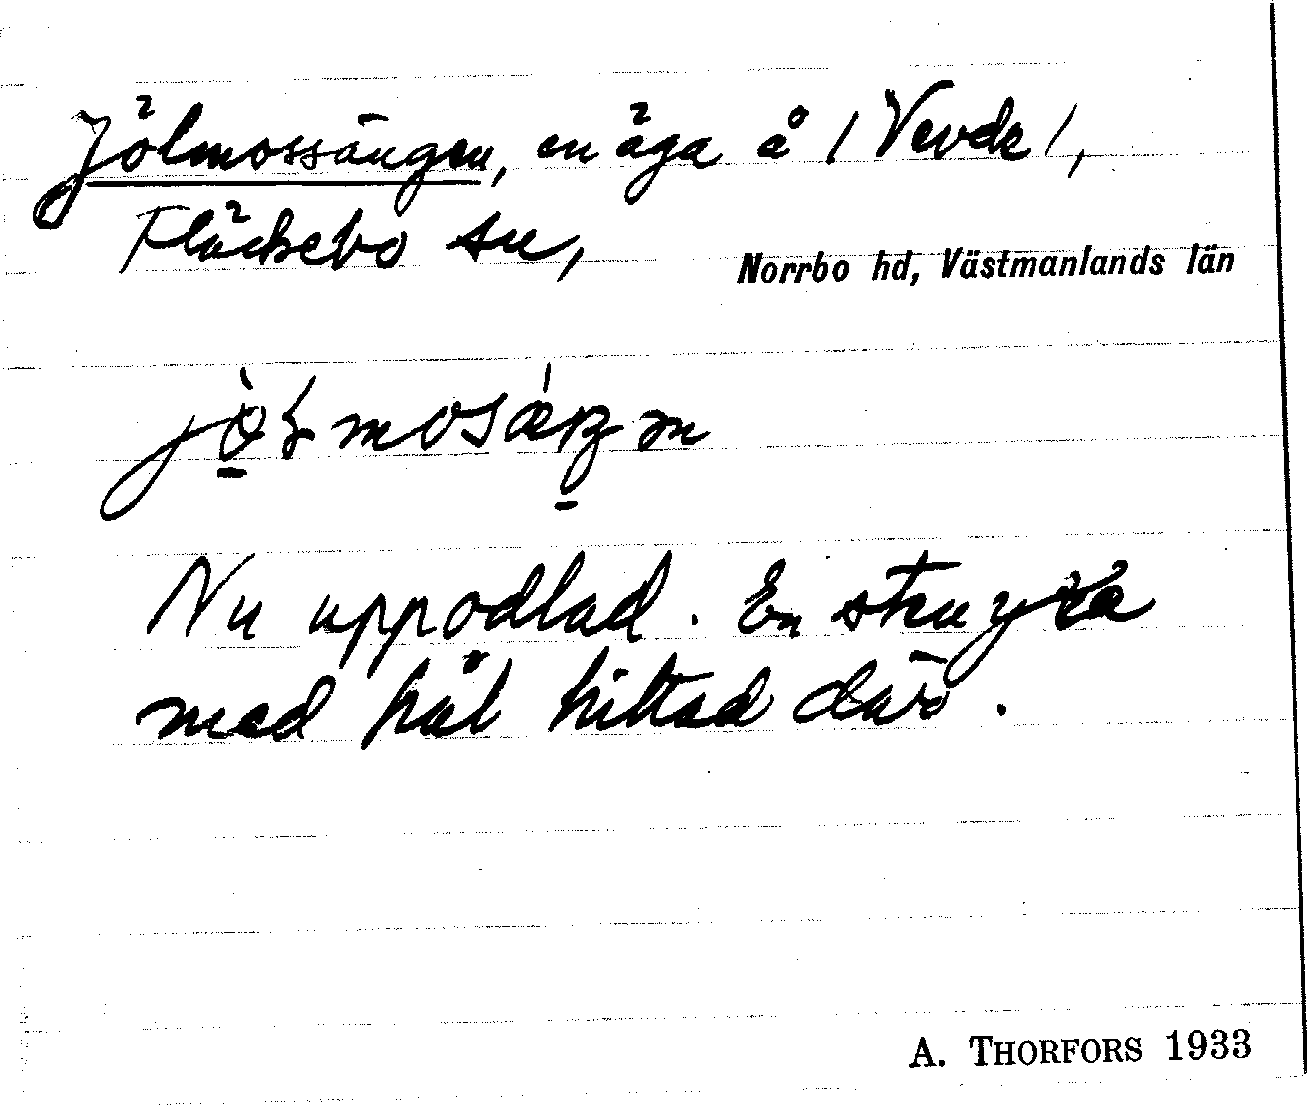 Jölmossängen, en äga å / Vevde /,
Fläckebo sn,
Norrbo hd, Västmanlands län
Nu uppodlad. En stenyxa
med hål hittad där.
A. THORFORS 1933